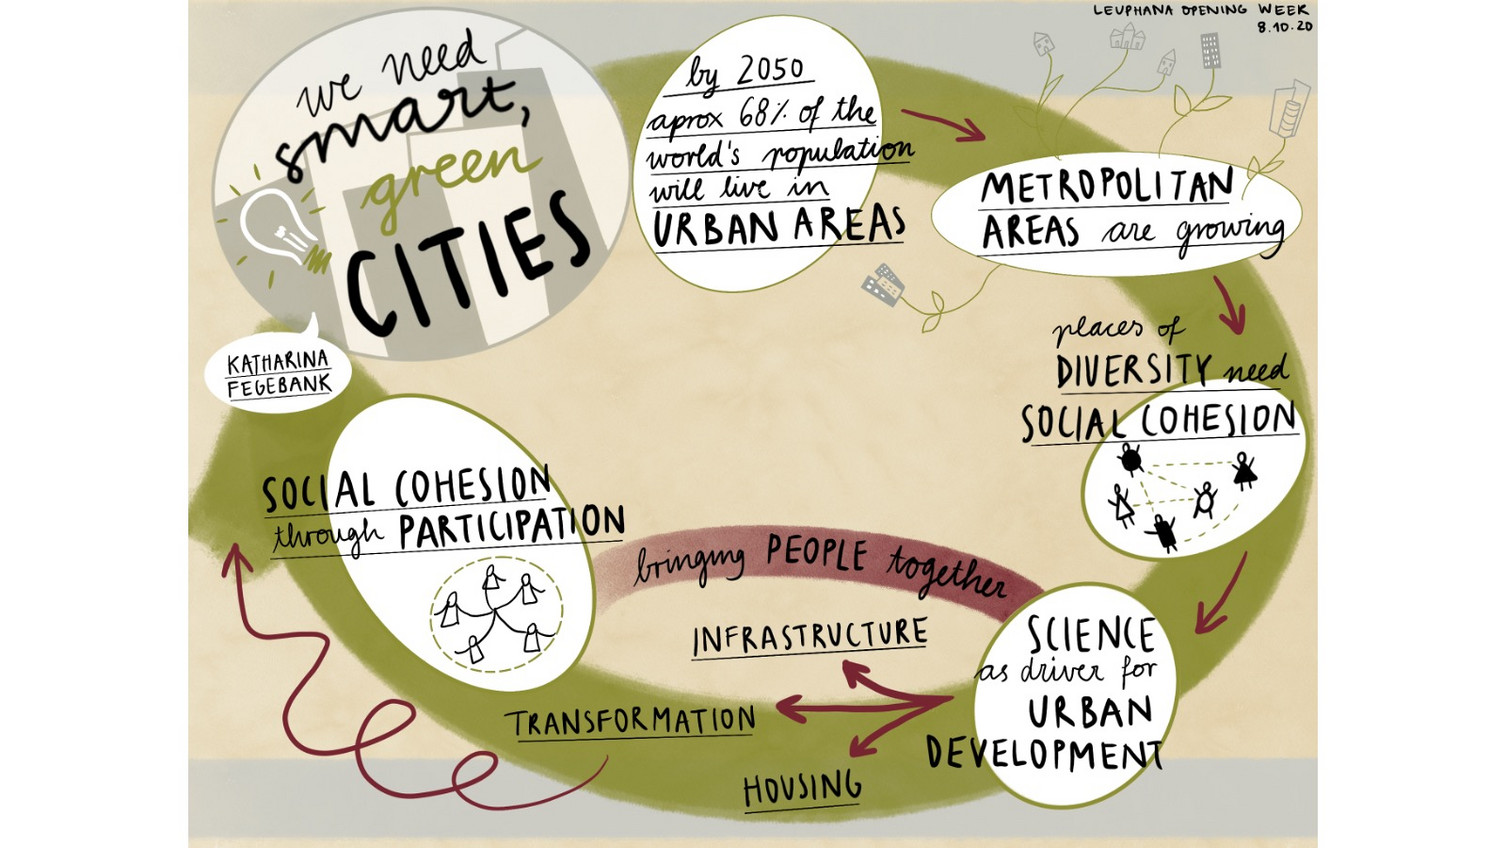 LEUPHANA OPENING WEEK
8.10.20
we need
smart,
green
CITIES
KATHARINA
FEGEBANK
by 2050
aprox 68% of the
world's population
will live in
URBAN AREAS
METROPOLITAN
AREAS are growing
places of
DIVERSITY need
SOCIAL COHESION
SCIENCE
as driver for
URBAN
DEVELOPMENT
INFRASTRUCTURE
TRANSFORMATION
HOUSING
bringing PEOPLE together
SOCIAL COHESION
through PARTICIPATION